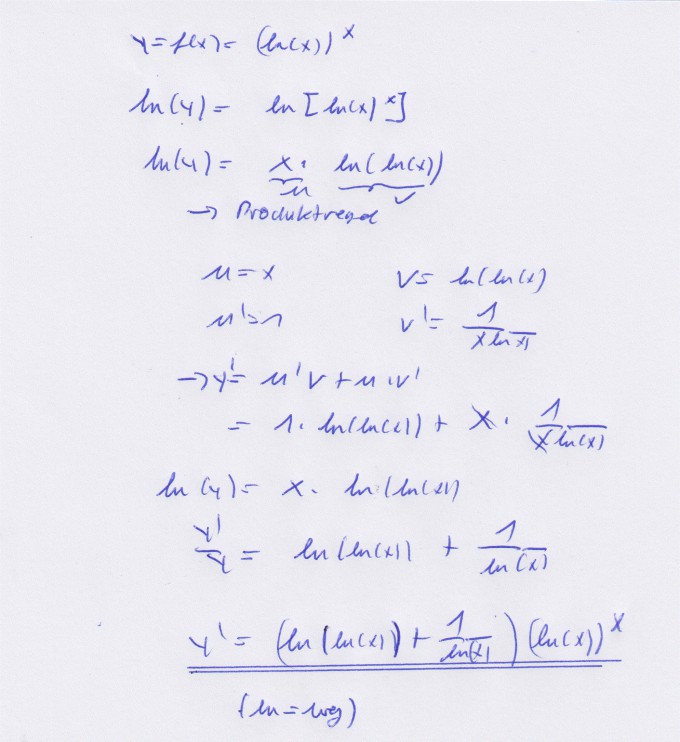 y=f(x)= (ln(x))^x
ln(y)= ln[ln(x)^x]
ln(y)= x · ln(ln(x))
u v
→ Produktregel
u=x v= ln(ln(x)
u'=1 v'= 1/(x ln x)
→ y'= u'v+u·v'
= 1· ln(ln(x)) + x · 1/(x ln(x))
ln(y)= x · ln(ln(x))
y'/y = ln(ln(x)) + 1/ln(x)
y' = (ln(ln(x))+ 1/ln(x)) (ln(x))^x
(ln=weg)